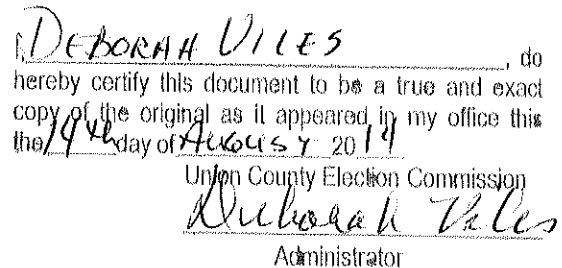 I, DEBORAH VILES, do
hereby certify this document to be a true and exact
copy of the original as it appeared in my office this
the 14th day of August 2014
Union County Election Commission
Deborah Viles
Administrator